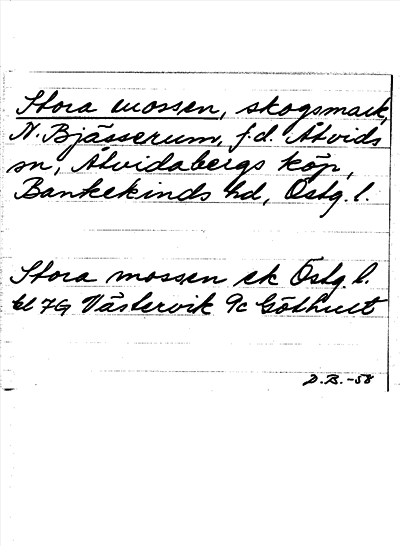 Stora mossen, skogsmark,
N. Bjässerum, f.d. Åtvids
sn, Åtvidabergs köp,
Bankekinds hd, Östg. l.
Stora mossen ek Östg. l.
bl 7G Västervik 9c Göthult
D.B.-58